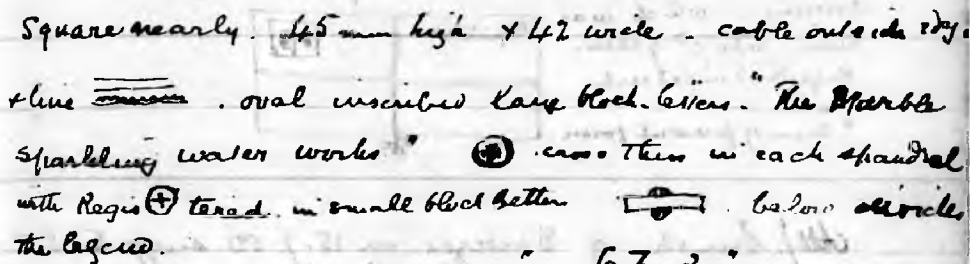 Square nearly. 45 mm high x 42 wide - cable outside edge
+ line . oval inscribed Large block-letters - "The Marble
sparkling water works" cross thus in each spandrel
with Regis tered in small block letters below divides
the legend.